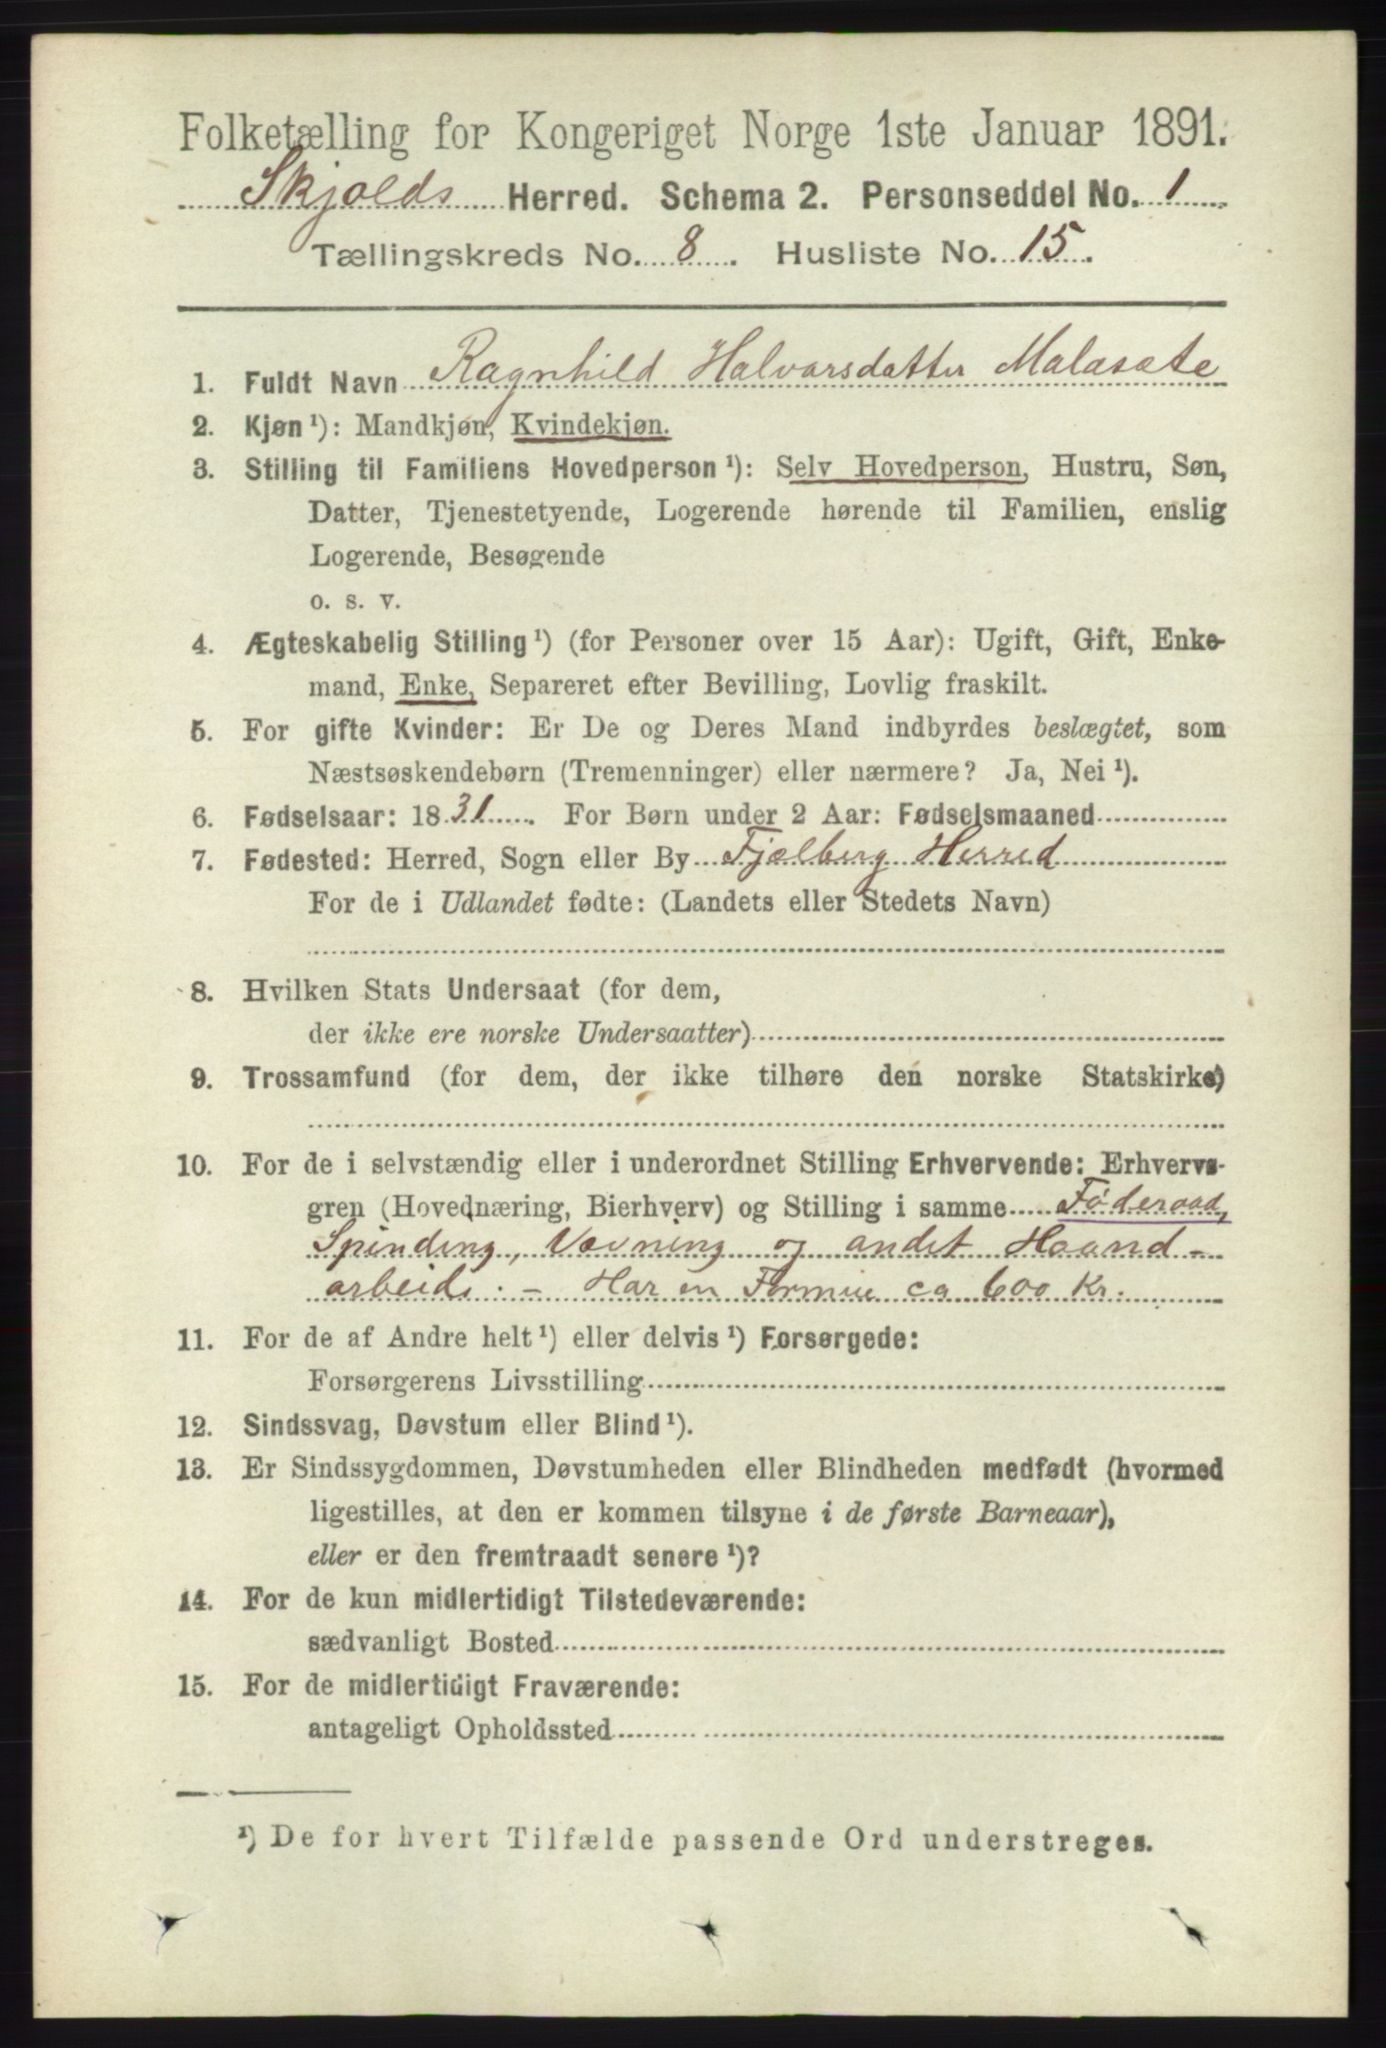 Folketælling for Kongeriget Norge 1ste Januar 1891.
Skjolds Herred. Schema 2. Personseddel No. 1
Tællingskreds No. 8. Husliste No. 15.
1. Fuldt Navn Ragnhild Halvorsdatter Malasæte
2. Kjøn ¹): Mandkjøn, Kvindekjøn.
3. Stilling til Familiens Hovedperson ¹): Selv Hovedperson, Hustru, Søn,
Datter, Tjenestetyende, Logerende hørende til Familien, enslig
Logerende, Besøgende
o. s. v.
4. Ægteskabelig Stilling ¹) (for Personer over 15 Aar): Ugift, Gift, Enke-
mand, Enke, Separeret efter Bevilling, Lovlig fraskilt.
5. For gifte Kvinder: Er De og Deres Mand indbyrdes beslægtet, som
Næstsøskendebørn (Tremenninger) eller nærmere? Ja, Nei ¹).
6. Fødselsaar: 1831. For Børn under 2 Aar: Fødselsmaaned
7. Fødested: Herred, Sogn eller By Fjælberg Herred
For de i Udlandet fødte: (Landets eller Stedets Navn)
8. Hvilken Stats Undersaat (for dem,
der ikke ere norske Undersaatter)
9. Trossamfund (for dem, der ikke tilhøre den norske Statskirke)
10. For de i selvstændig eller i underordnet Stilling Erhvervende: Erhvervs-
gren (Hovednæring, Bierhverv) og Stilling i samme Føderaad,
Spinding, Vævning og andet Haand-
arbeide. – Har en Formue ca 600 Kr.
11. For de af Andre helt ¹) eller delvis ¹) Forsørgede:
Forsørgerens Livsstilling
12. Sindssvag, Døvstum eller Blind ¹).
13. Er Sindssygdommen, Døvstumheden eller Blindheden medfødt (hvormed
ligestilles, at den er kommen tilsyne i de første Barneaar),
eller er den fremtraadt senere ¹)?
14. For de kun midlertidigt Tilstedeværende:
sædvanligt Bosted
15. For de midlertidigt Fraværende:
antageligt Opholdssted
¹) De for hvert Tilfælde passende Ord understreges.